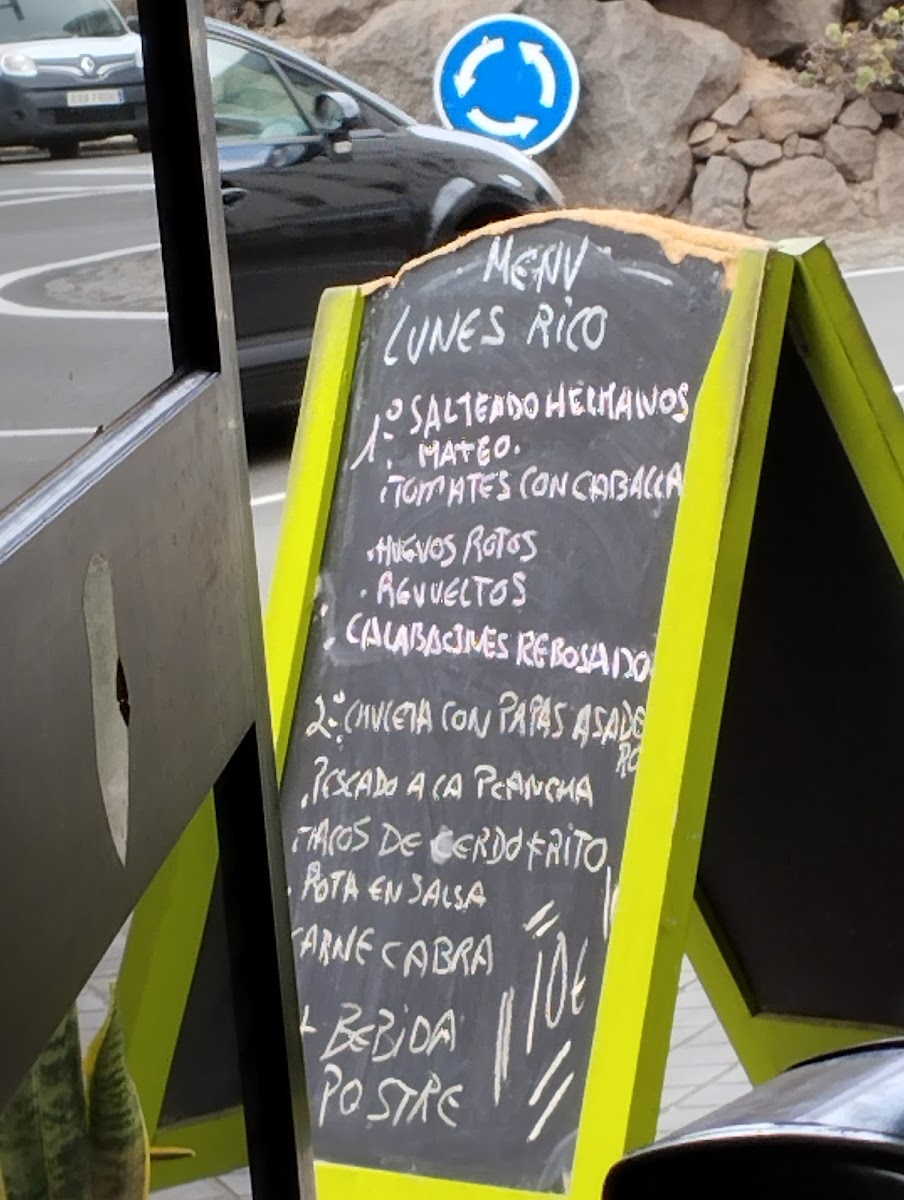 MENU
LUNES RICO
1º SALTEADO HERMANOS
MATEO.
TOMATES CON CABALLA
.HUEVOS ROTOS
. REVUELTOS
. CALABACINES REBOSADO
2º CHULETA CON PAPAS ASADO
RO
.PESCADO A LA PLANCHA
TACOS DE CERDO FRITO
. POTA EN SALSA
CARNE CABRA
10€
+ BEBIDA
POSTRE